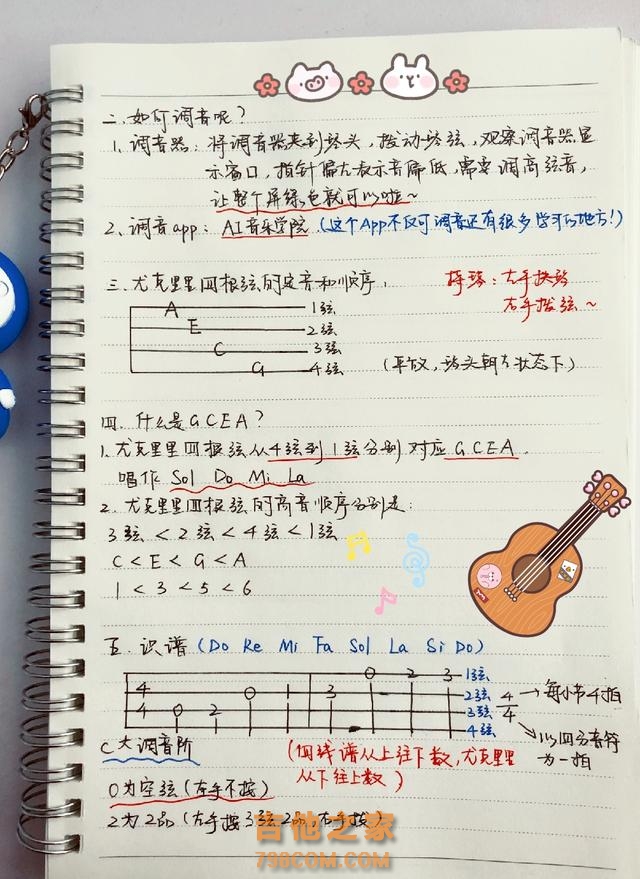 二.如何调音呢?
1.调音器:将调音器夹到琴头,拨动琴弦,观察调音器显
示窗口,指针偏左表示音偏低,需要调高弦音,
让整个屏绿色就可以啦~
2.调音app:AI音乐学院(这个App不仅可调音还有很多学习的地方!)
三.尤克里里四根弦的定音和顺序.
持琴:左手按弦
右手拨弦~
A 1弦
E 2弦
C 3弦
G 4弦
(平放,琴头朝左状态下)
四.什么是GCEA?
1.尤克里里四根弦从4弦到1弦分别对应GCEA.
唱作Sol Do Mi La
2.尤克里里四根弦的高音顺序分别是:
3弦<2弦<4弦<1弦
C<E<G<A
1<3<5<6
五.识谱(Do Re Mi Fa Sol La Si Do)
0 2 3 1弦
4 0 1 3 2弦
4 0 2 3弦
4弦
4/4
每小节4拍
以四分音符
为一拍
C大调音阶
(四线谱从上往下数,尤克里里
从下往上数)
0为空弦(左手不按)
2为2品(左手按3弦2品,右手拨)
吉他之家
798COM.COM